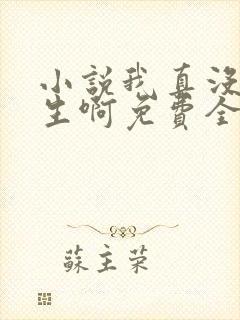 小說我真沒
生啊免費全
蘇主荣